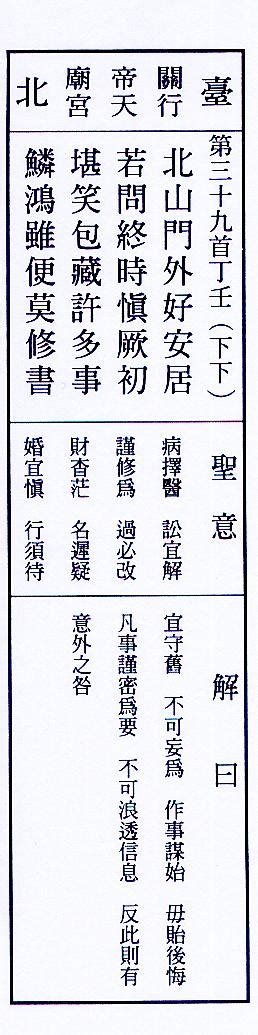 臺北
關帝廟
行天宮
第三十九首丁壬（下下）
北山門外好安居
若問終時愼厥初
堪笑包藏許多事
鱗鴻雖便莫修書
聖意
病擇醫 訟宜解
謹修爲 過必改
財杳茫 名遲疑
婚宜愼 行須待
解曰
宜守舊 不可妄爲 作事謀始 毋貽後悔
凡事謹密爲要 不可浪透信息 反此則有
意外之咎